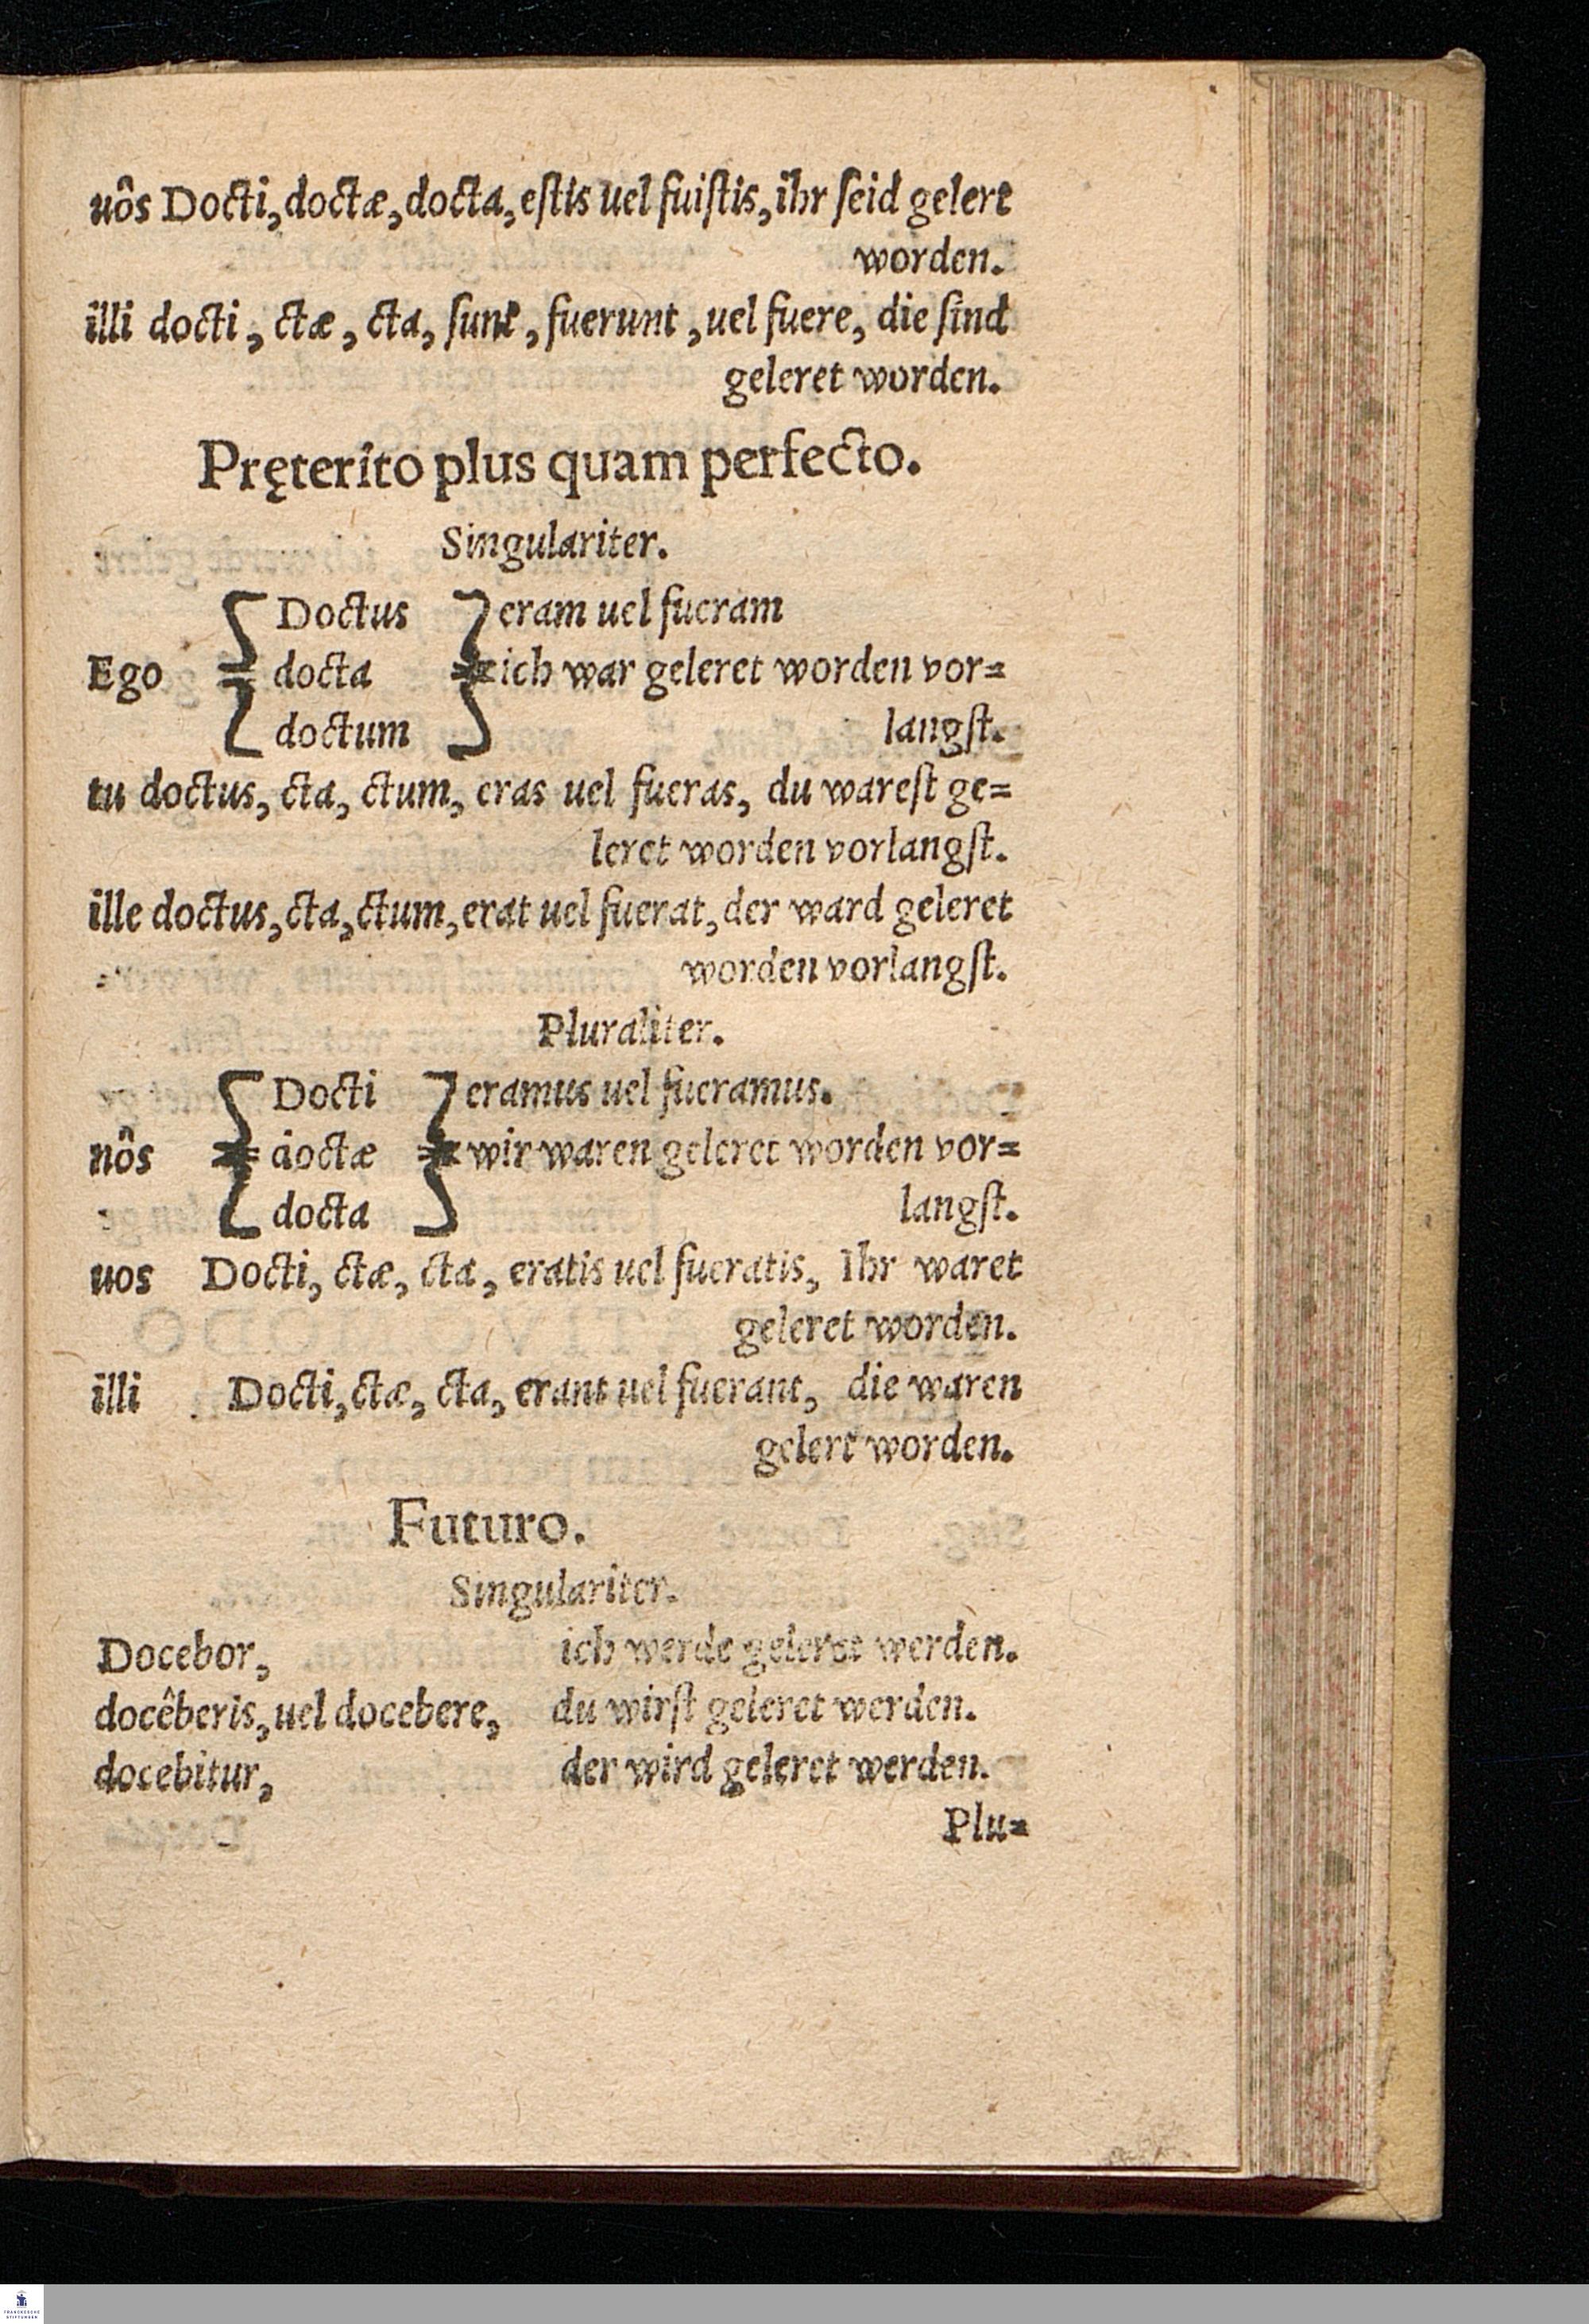 uôs Docti, doctæ, docta, eſtis uel fuiſtis, ihr ſeid gelert
worden.
illi docti, ctæ, cta, ſunt, fuerunt, uel fuere, die ſind
geleret worden.
Pręterîto plus quam perfecto.
Singulariter.
Doctus eram uel fueram
Ego docta ich war geleret worden vor=
doctum langſt.
tu doctus, cta, ctum, eras uel fueras, du wareſt ge=
leret worden vorlangſt.
ille doctus, cta, ctum, erat uel fuerat, der ward geleret
worden vorlangſt.
Pluraliter.
Docti eramus uel fueramus.
nôs doctæ wir waren geleret worden vor=
docta langſt.
uos Docti, ctæ, cta, eratis uel fueratis, Ihr waret
geleret worden.
illi Docti, ctæ, cta, erant uel fuerant, die waren
gelert worden.
Futuro.
Singulariter.
Docebor, ich werde geleret werden.
docêberis, uel docebere, du wirſt geleret werden.
docebitur, der wird geleret werden.
Plu=
FRANCKESCHE
STIFTUNGEN